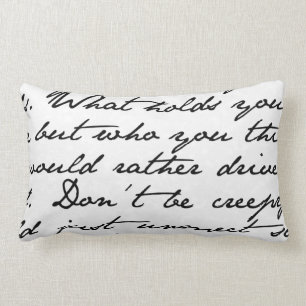 . What holds you
but who you thi
would rather drive
t. Don't be creepy
d just